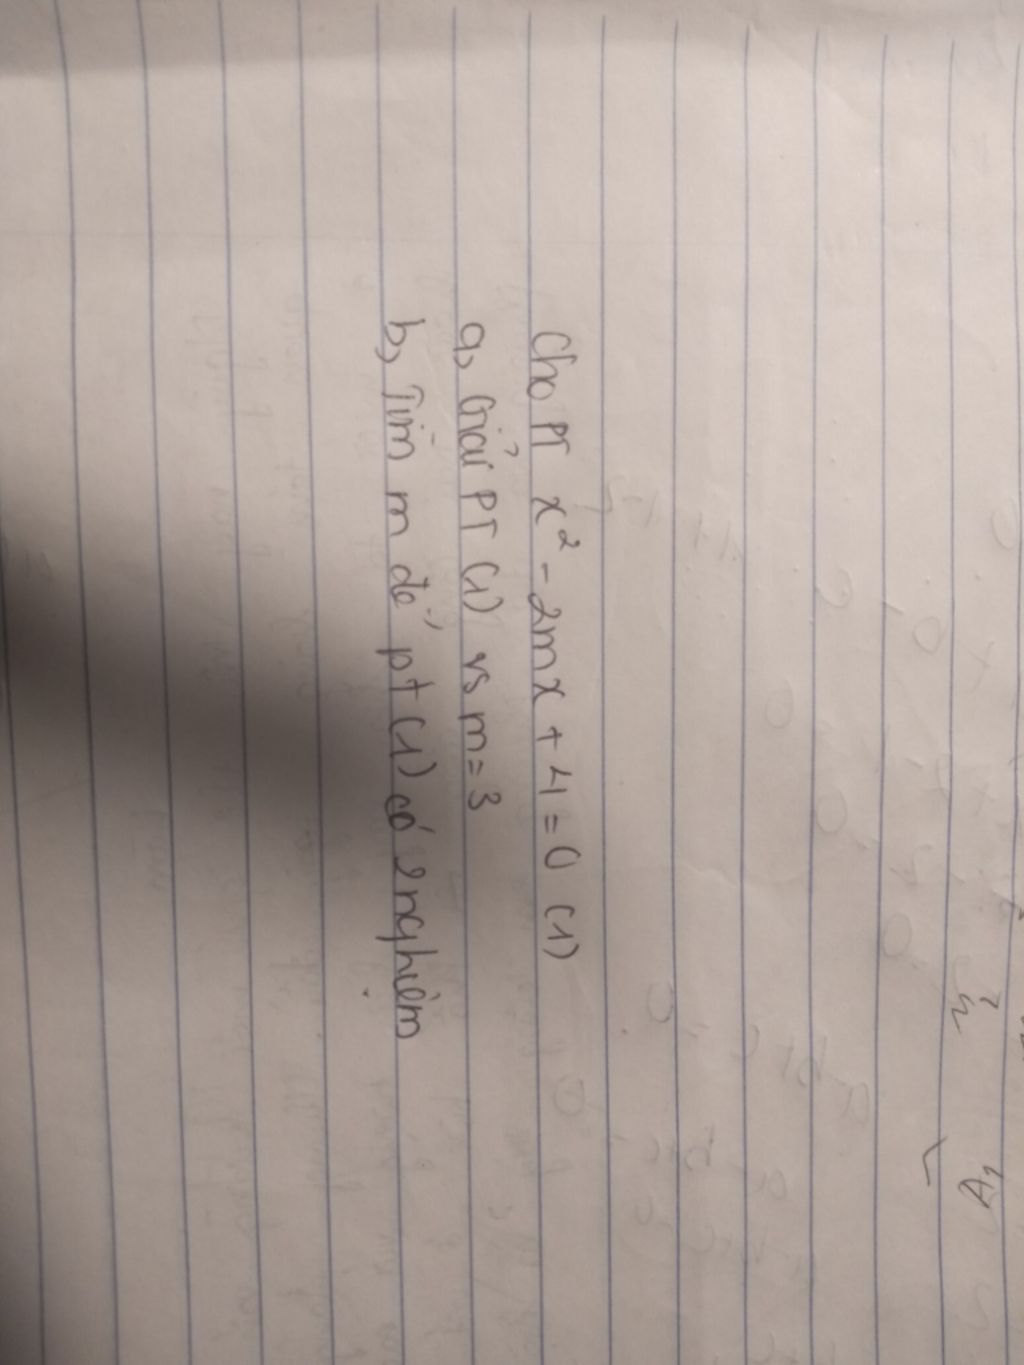 Cho PT x² - 2mx + 4 = 0 (1)
a, Giải PT (1) vs m = 3
b, Tìm m để pt (1) có 2 nghiệm